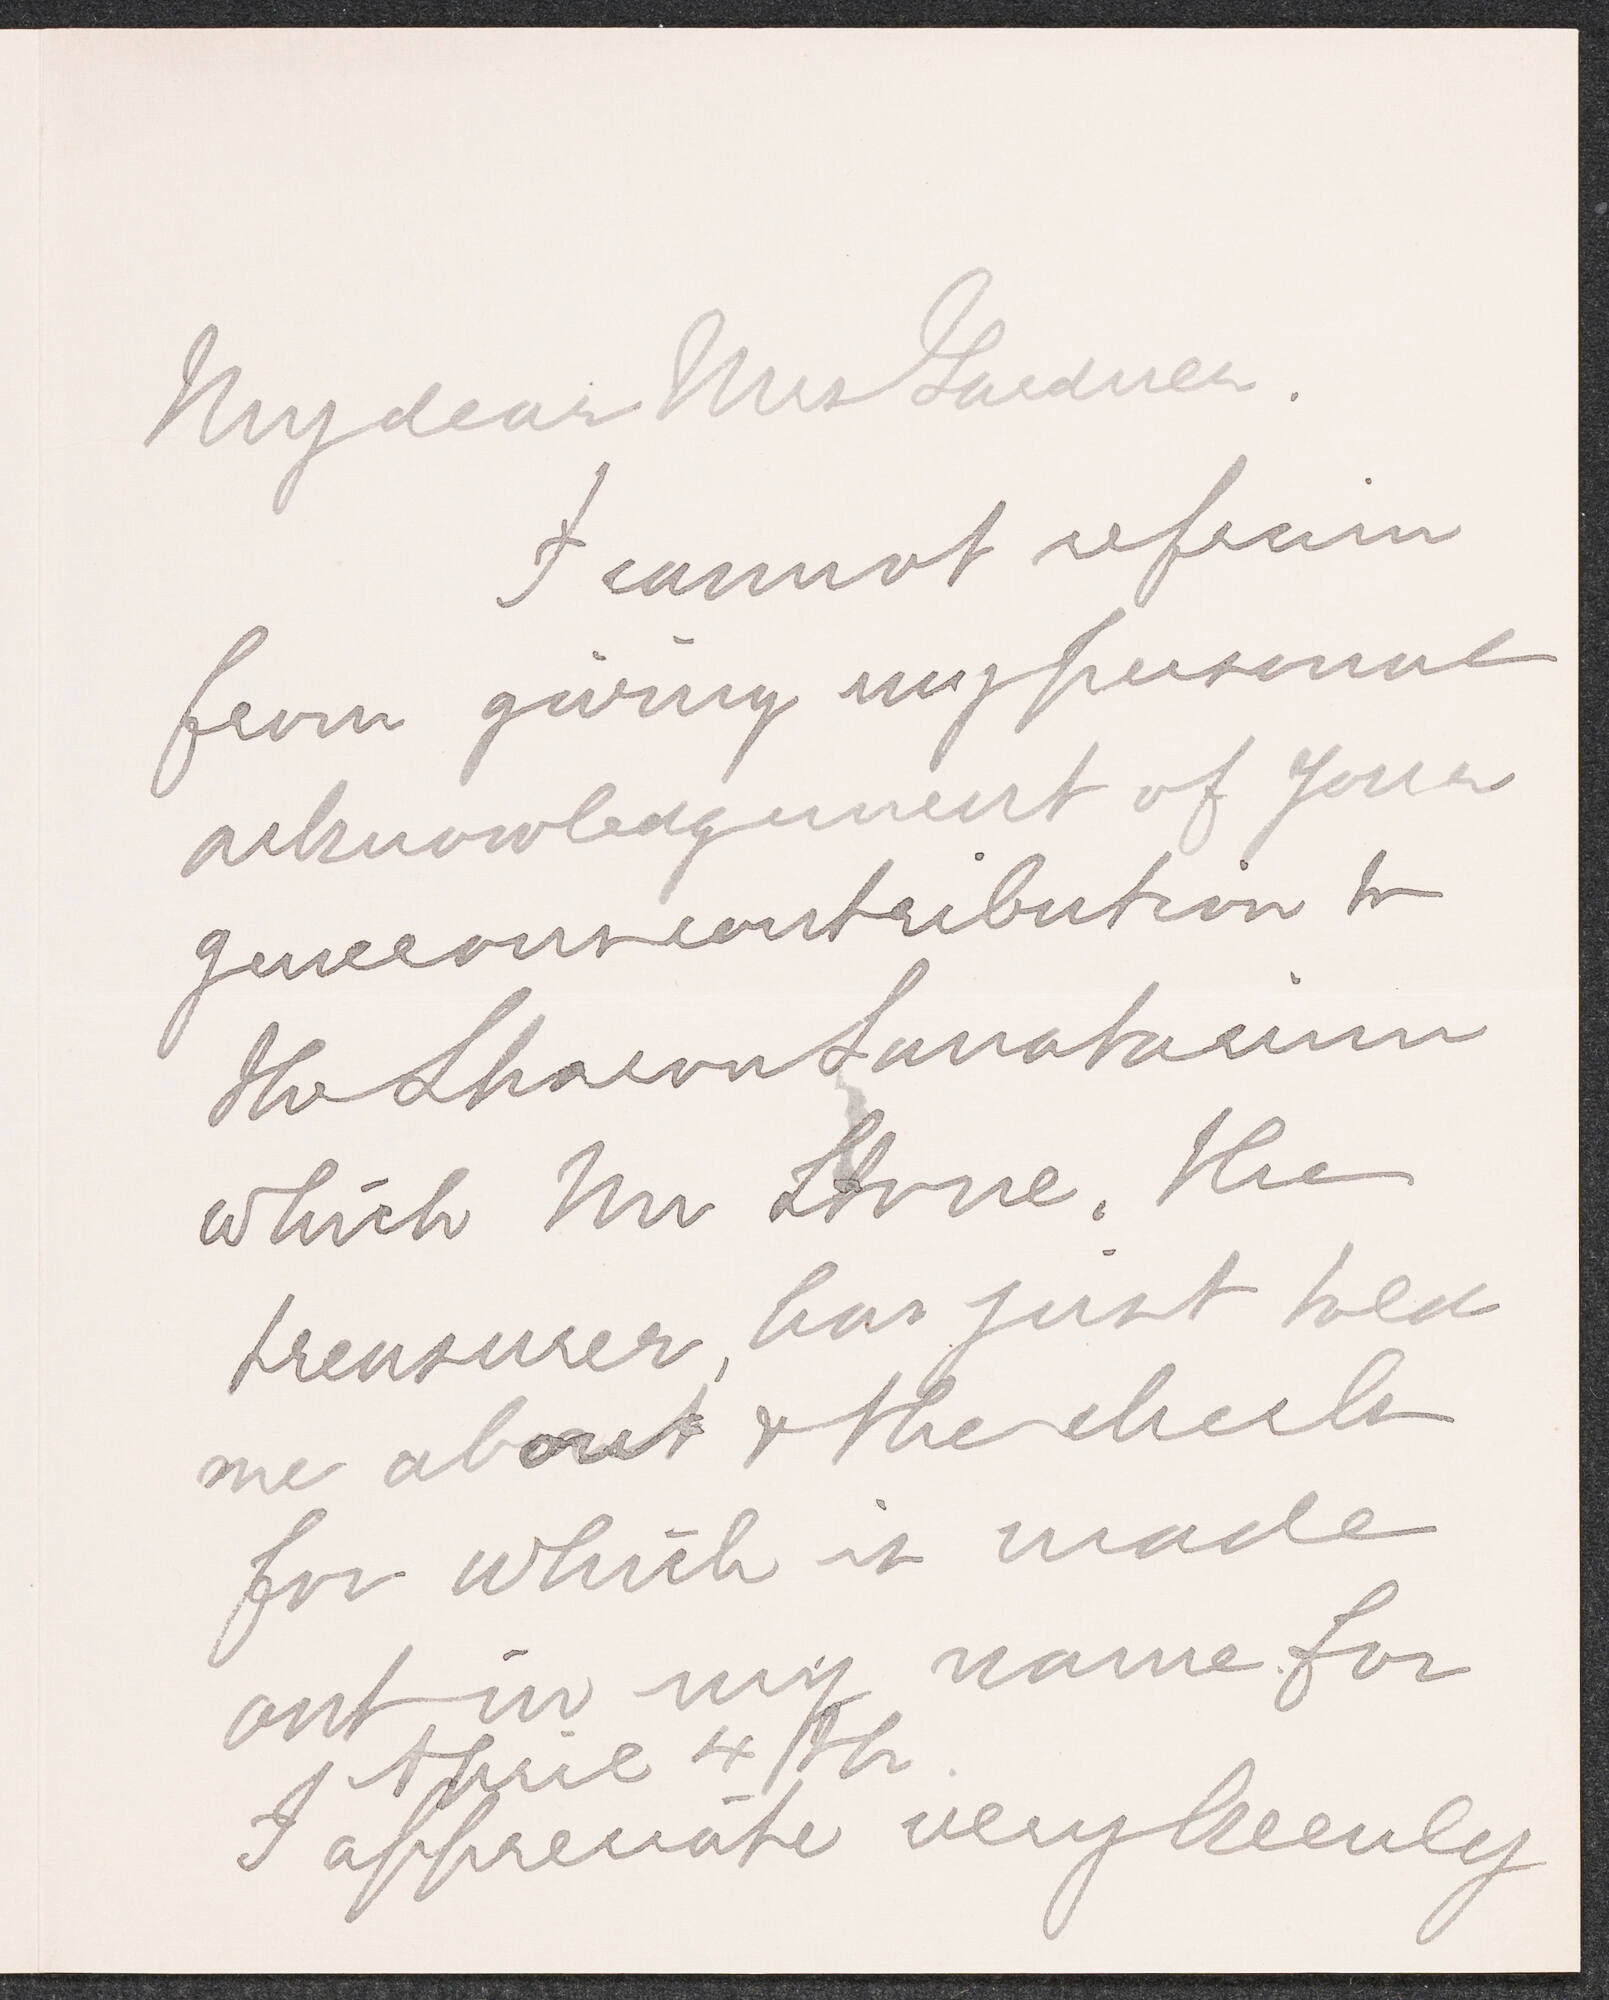 My dear Mrs Gardner.
I cannot refrain
from giving my personal
acknowledgement of your
generous contribution to
the Sharon Sanatorium
which Mr Stone, the
treasurer, has just told
me about & the check
for which is made
out in my name for
April 4th.
I appreciate very keenly